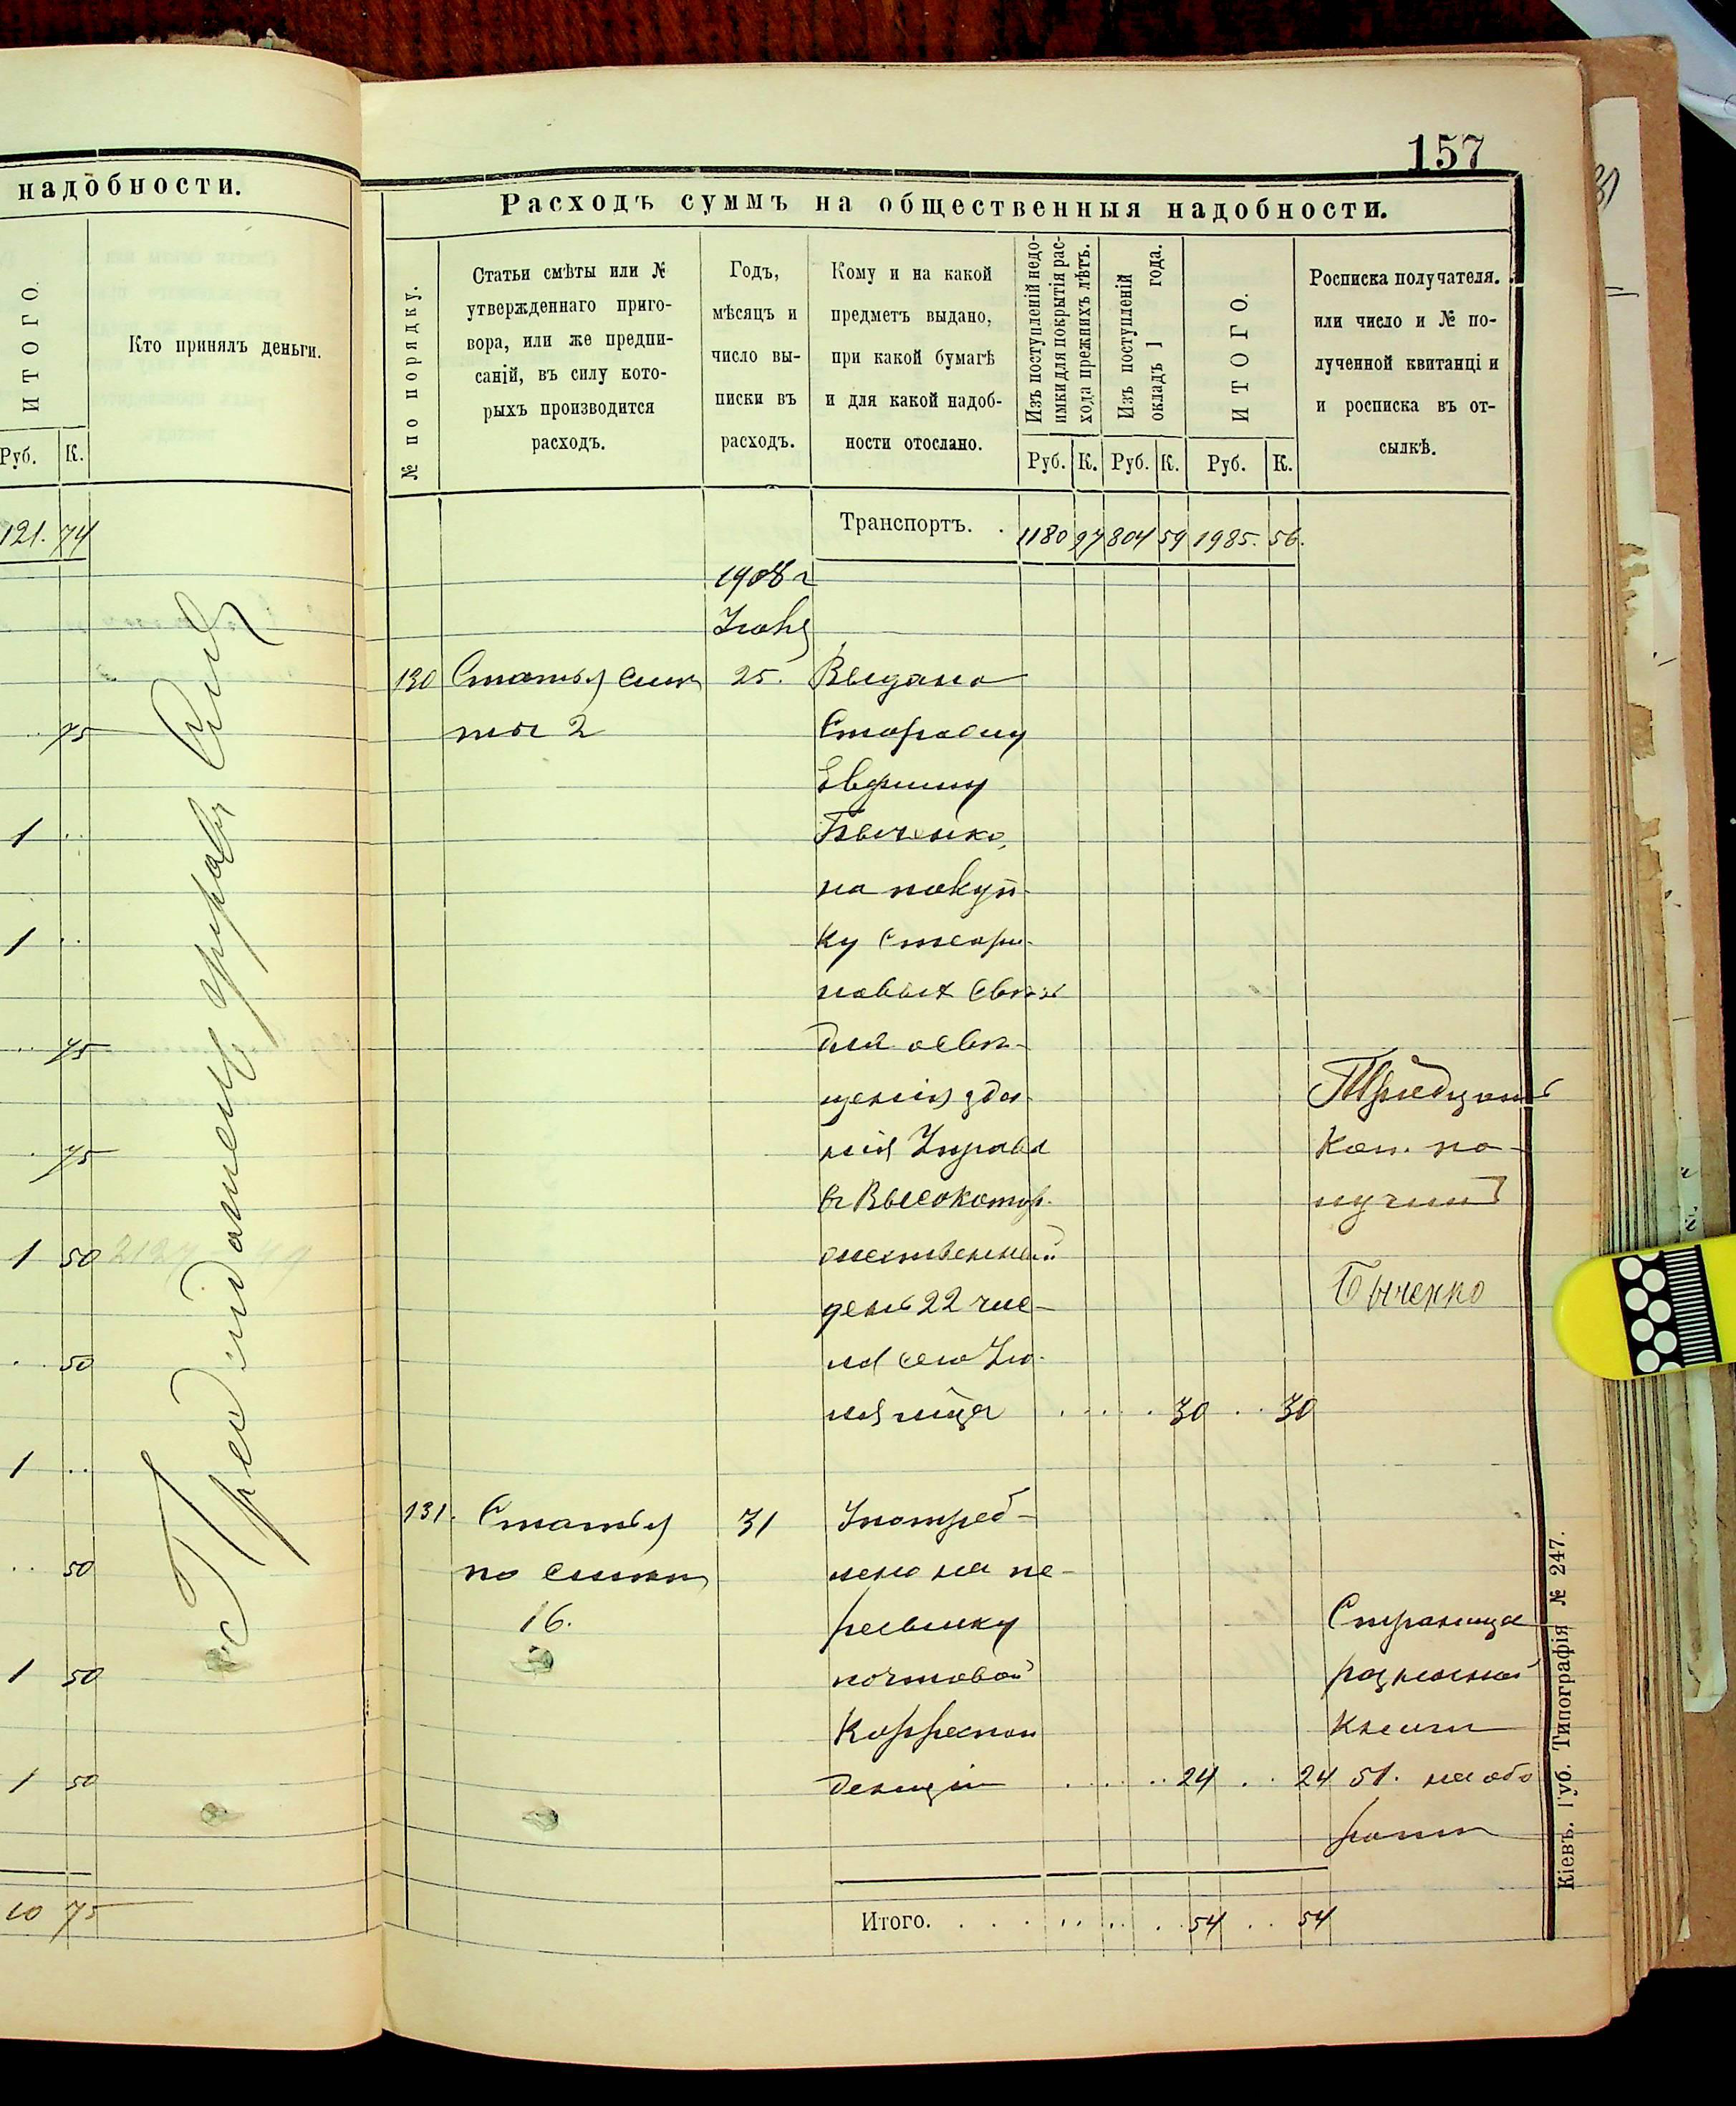 надобности.
ИТОГО.
Кто принялъ деньги.
Руб. К.
121. 74
75
1 ..
1 ..
.. 75
. 75
1 50
. 50
1 ..
.. 50
1 50
1 50
10 75
157
Расходъ суммъ на общественныя надобности.
№ по порядку.
Статьи смѣты или №
утвержденнаго приго-
вора, или же предпи-
саній, въ силу кото-
рыхъ производится
расходъ.
Годъ,
мѣсяцъ и
число вы-
писки въ
расходъ.
Кому и на какой
предметъ выдано,
при какой бумагѣ
и для какой надоб-
ности отослано.
Изъ поступленій недо-
имки для покрытія рас-
хода прежнихъ лѣтъ.
Изъ поступленій
окладъ 1 года.
ИТОГО.
Росписка получателя.
или число и № по-
лученной квитанці и
и росписка въ от-
сылкѣ.
Руб. К. Руб. К. Руб. К.
Транспортъ. . 1180 97 804 59 1985. 56.
1908 г
Іюня
130 Статья смѣ 25. Выдано
ты 2 Сторожу
Евфиму
Быченко,
на покуп-
ку стеари-
новыхъ свѣчъ
для освѣ-
щенія зда-
нія Управы
въ Высокотор-
жественный
день 22 чис-
ла сего Ію-
ня мѣца . . . . . 30 . . 30
Тридцать
коп. по-
лучилъ
Быченко
131. Статья 31 Употреб-
по смѣтѣ лено на пе-
16. ресылку
почтовой
Корреспон
денціи . . . . . 24 . . 24
Страница
разносной
книги
51. на обо
ротѣ
Итого. . . . . . . . 54 . . 54
Кіевъ. Губ. Типографія № 247.